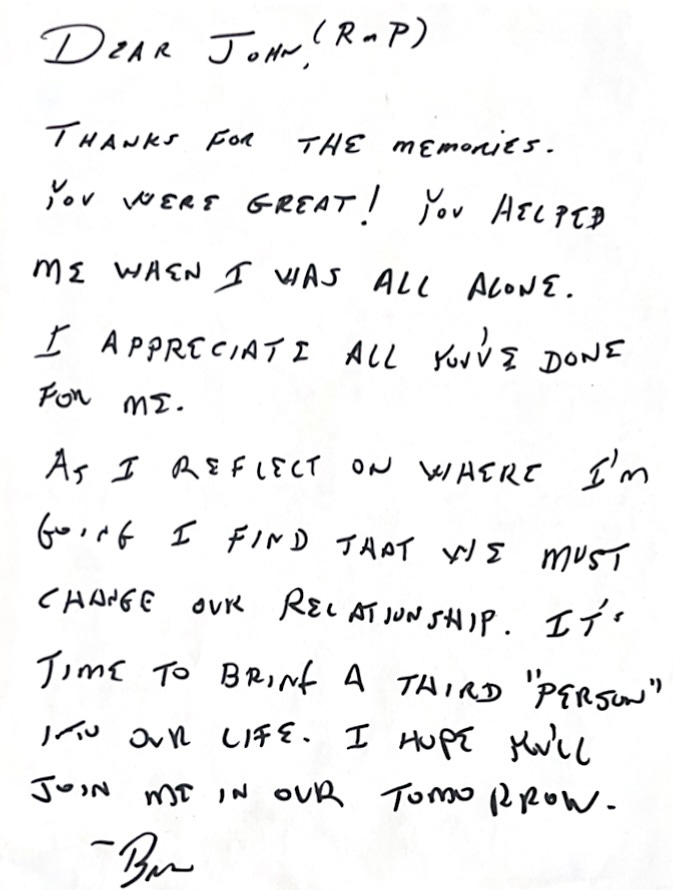 DEAR JOHN, (R n P)
THANKS FOR THE MEMORIES.
YOU WERE GREAT! YOU HELPED
ME WHEN I WAS ALL ALONE.
I APPRECIATE ALL YOU'VE DONE
FOR ME.
AS I REFLECT ON WHERE I'M
GOING I FIND THAT WE MUST
CHANGE OUR RELATIONSHIP. IT'S
TIME TO BRING A THIRD "PERSON"
INTO OUR LIFE. I HOPE YOU'LL
JOIN ME IN OUR TOMORROW.